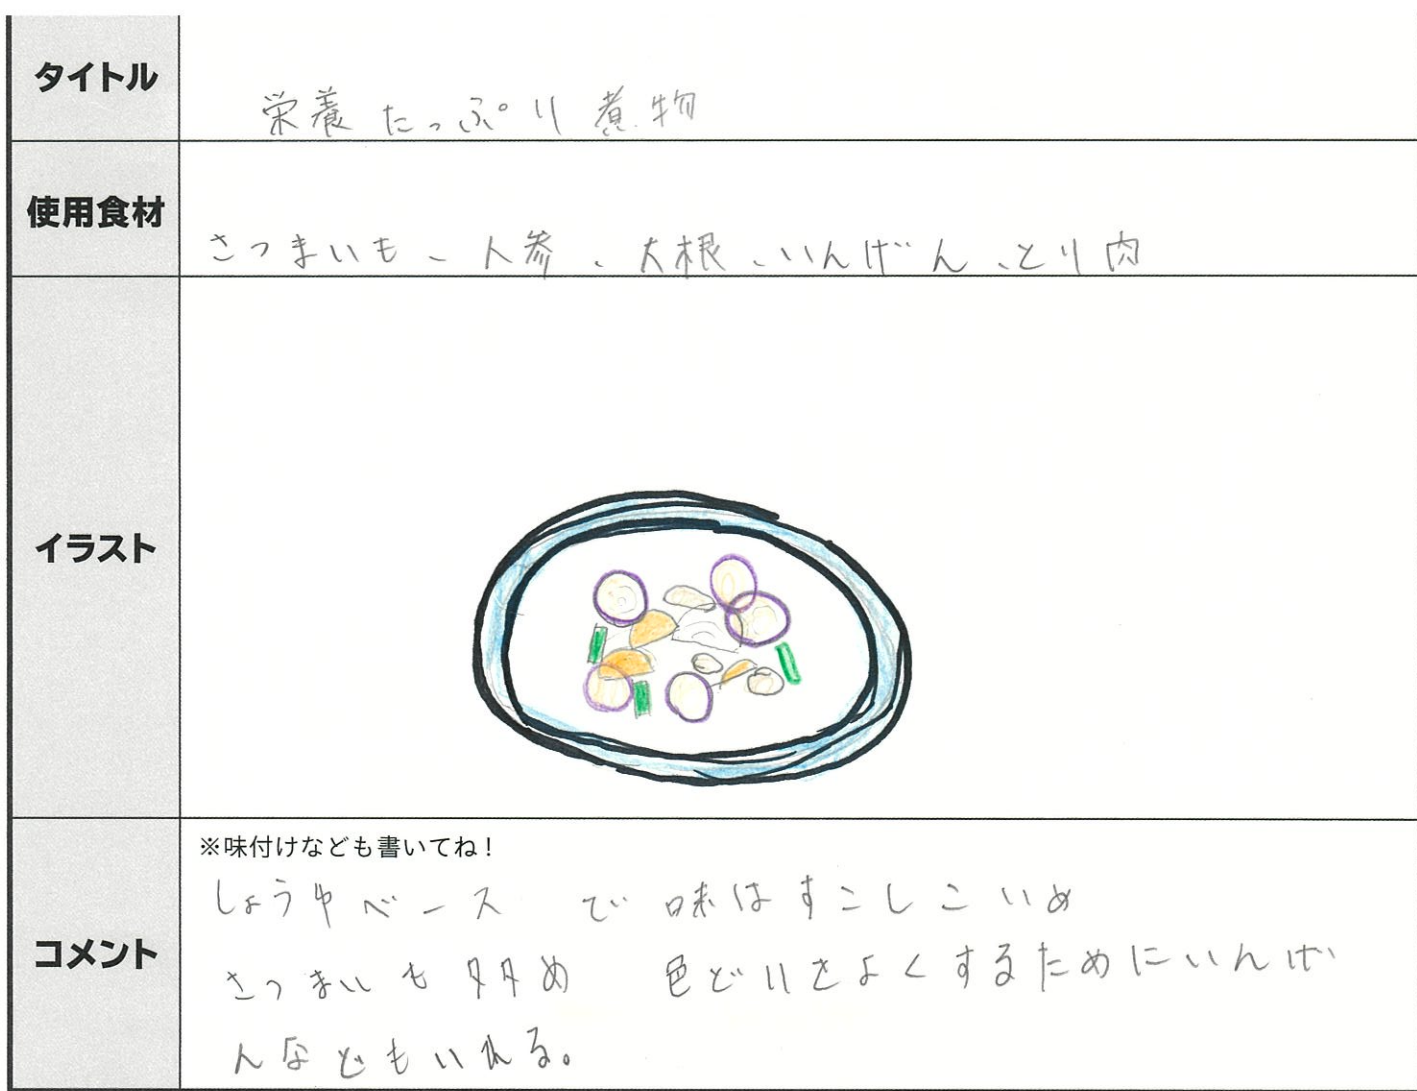 タイトル
栄養たっぷり煮物
使用食材
さつまいも、人参、大根、いんげん、とり肉
イラスト
コメント
※味付けなども書いてね!
しょうゆベース で 味はすこしこいめ
さつまいも多め 色どりをよくするためにいんげ
んなどもいれる。